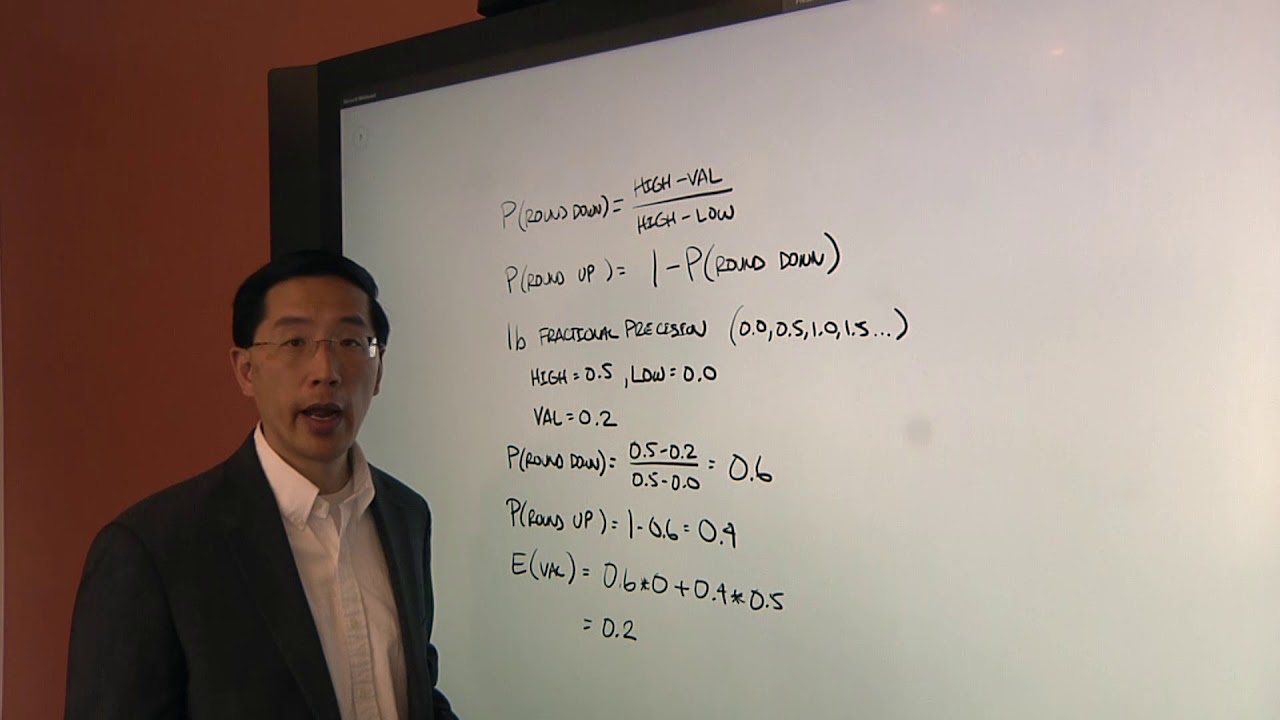 P(ROUND DOWN) = HIGH - VAL / HIGH - LOW
P(ROUND UP) = 1 - P(ROUND DOWN)
1b FRACTIONAL PRECISION (0.0, 0.5, 1.0, 1.5...)
HIGH = 0.5, LOW = 0.0
VAL = 0.2
P(ROUND DOWN) = 0.5 - 0.2 / 0.5 - 0.0 = 0.6
P(ROUND UP) = 1 - 0.6 = 0.4
E(VAL) = 0.6 * 0 + 0.4 * 0.5
= 0.2